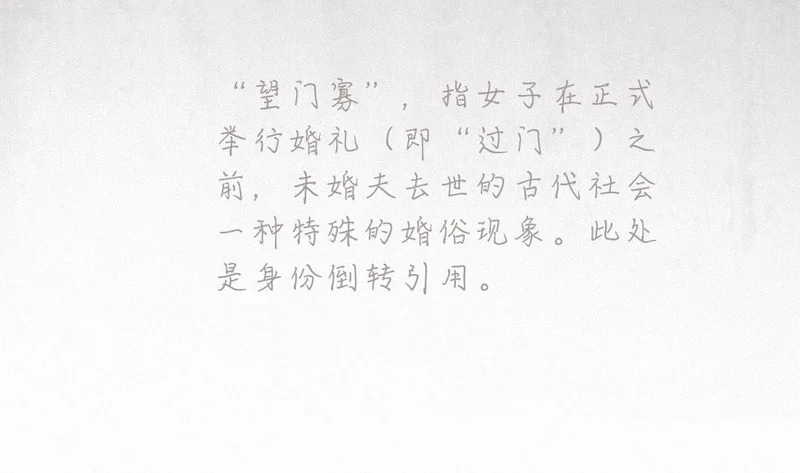 “望门寡”，指女子在正式
举行婚礼（即“过门”）之
前，未婚夫去世的古代社会
一种特殊的婚俗现象。此处
是身份倒转引用。